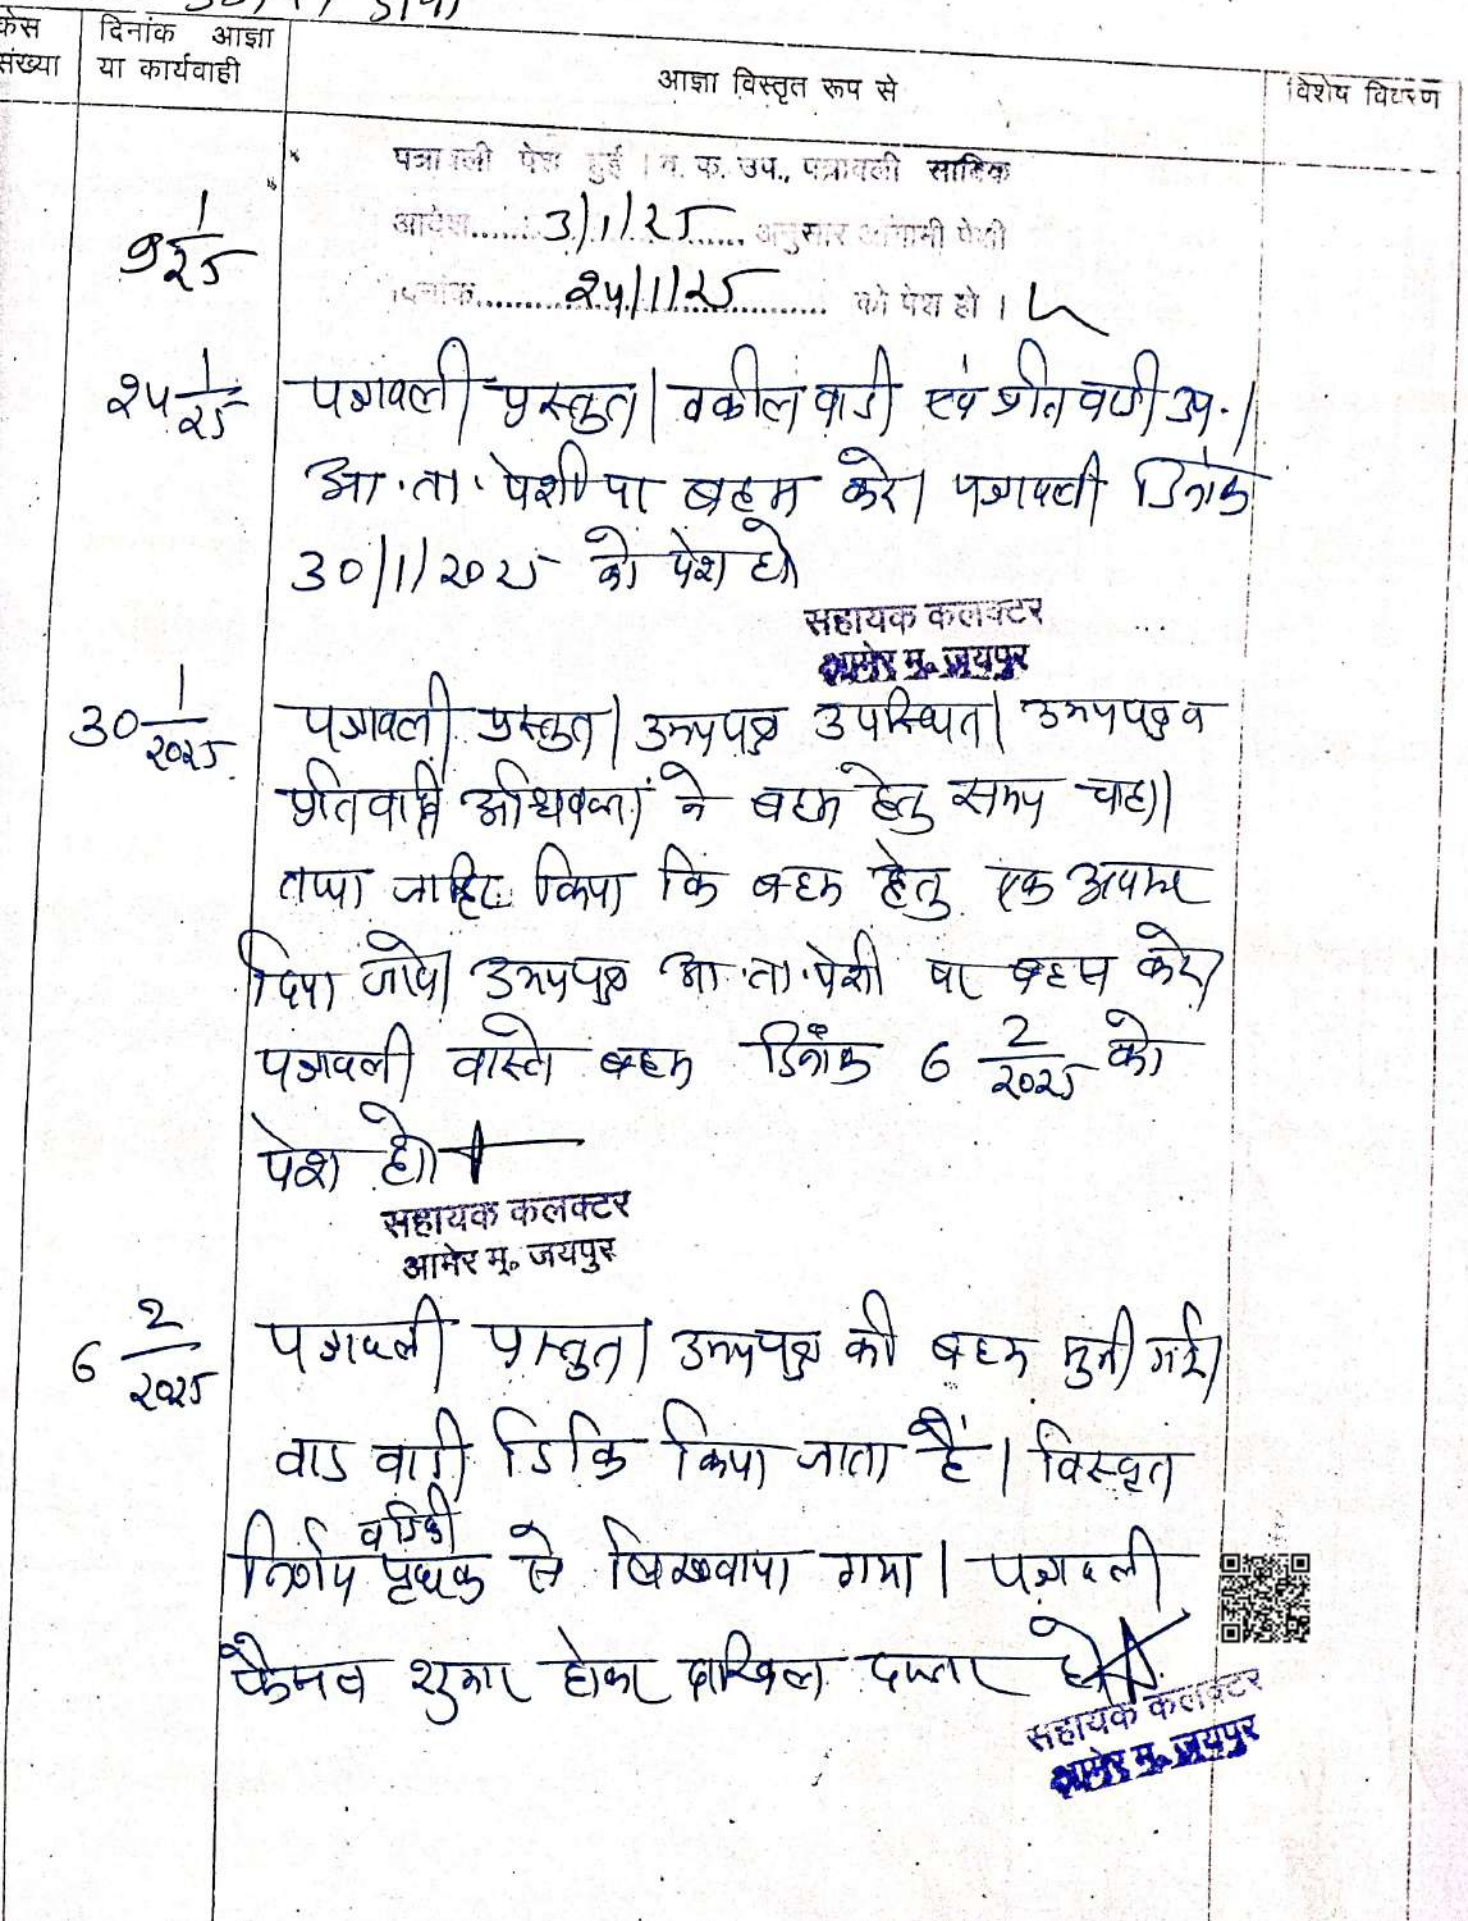 केस संख्या
दिनांक आज्ञा या कार्यवाही
आज्ञा विस्तृत रूप से
विशेष विवरण
पत्रावली पेश हुई । व. फ. उप., पत्रावली साबिक
आदेश...... 3/1/25 ...... अनुसार आगामी पेशी
9 1/25
दिनांक...... 24/1/25 ...... को पेश हो ।
24 1/25 पत्रावली प्रस्तुत। वकील वादी एवं प्रतिवादी उप.।
आ.ता. पेशी पर बहस करे। पत्रावली दिनांक
30/1/2025 को पेश हो
सहायक कलक्टर
आमेर मु. जयपुर
30 1/2025 पत्रावली प्रस्तुत। उभयपक्ष उपस्थित। उभयपक्ष व
प्रतिवादी अधिवक्ता ने बहस हेतु समय चाहा।
तथा जाहिर किया कि बहस हेतु एक अवसर
दिया जावे। उभयपक्ष आ.ता. पेशी पर बहस करे।
पत्रावली वास्ते बहस दिनांक 6 2/2025 को
पेश हो।
सहायक कलक्टर
आमेर मु. जयपुर
6 2/2025 पत्रावली प्रस्तुत। उभयपक्ष की बहस सुनी गई।
वाद वादी डिक्रि किया जाता है। विस्तृत
निर्णय पृथक से लिखवाया गया। पत्रावली
फैसल शुमार होकर दाखिल दफ्तर हो।
सहायक कलक्टर
आमेर मु. जयपुर